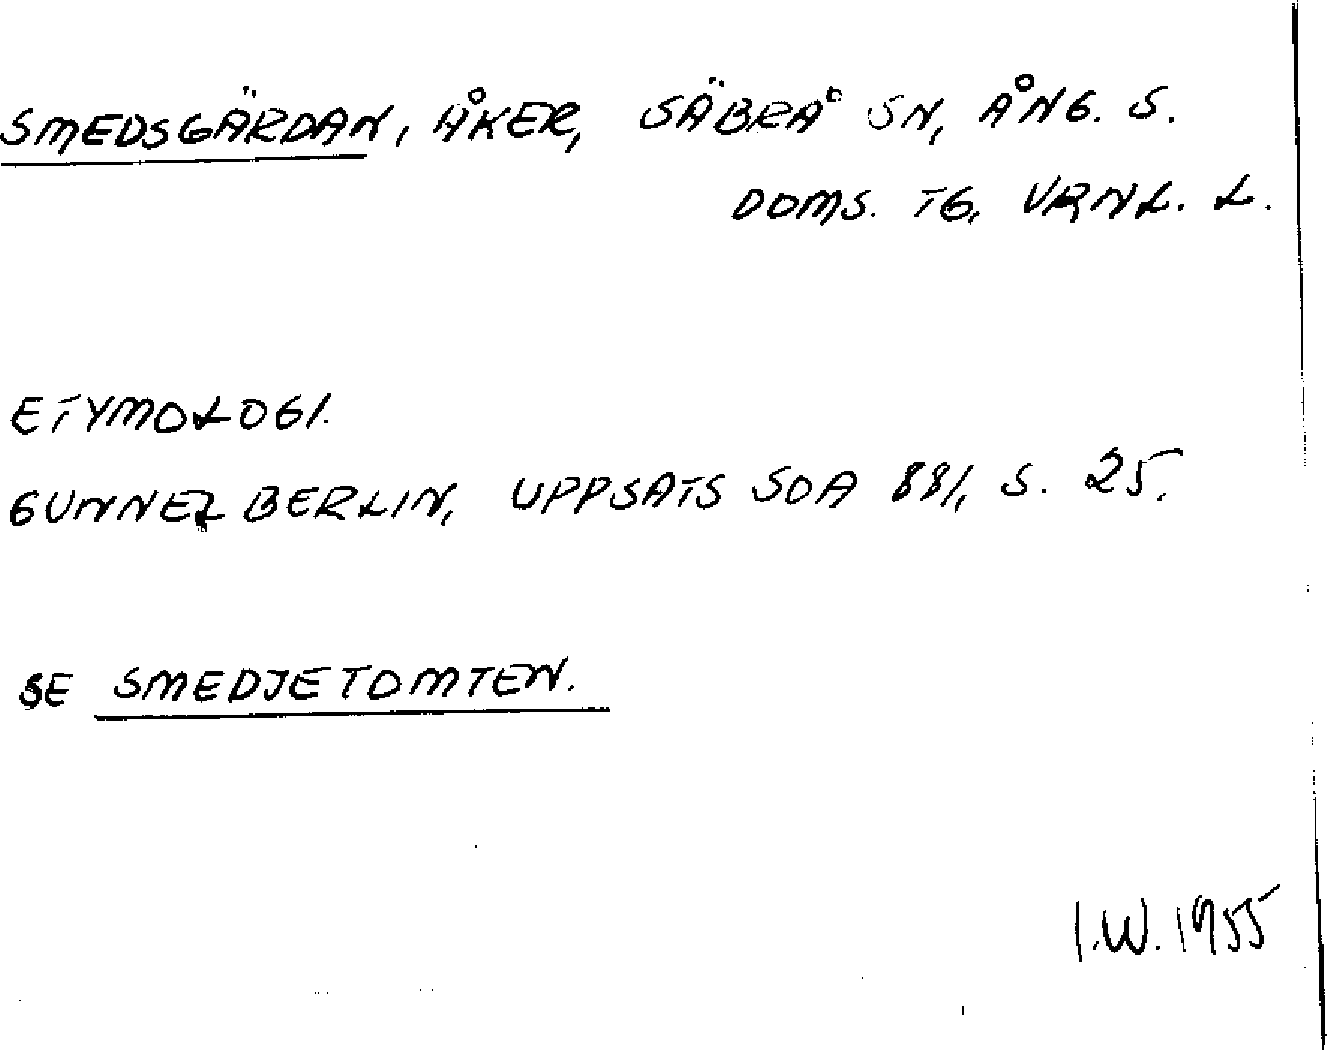 SMEDSGÄRDAN, ÅKER, SÄBRÅ SN, ÅNG. S.
DOMS. TG, VRNL. L.
ETYMOLOGI.
GUNNEL BERLIN, UPPSATS SOA 881, S. 25.
SE SMEDJETOMTEN.
I.W. 1955